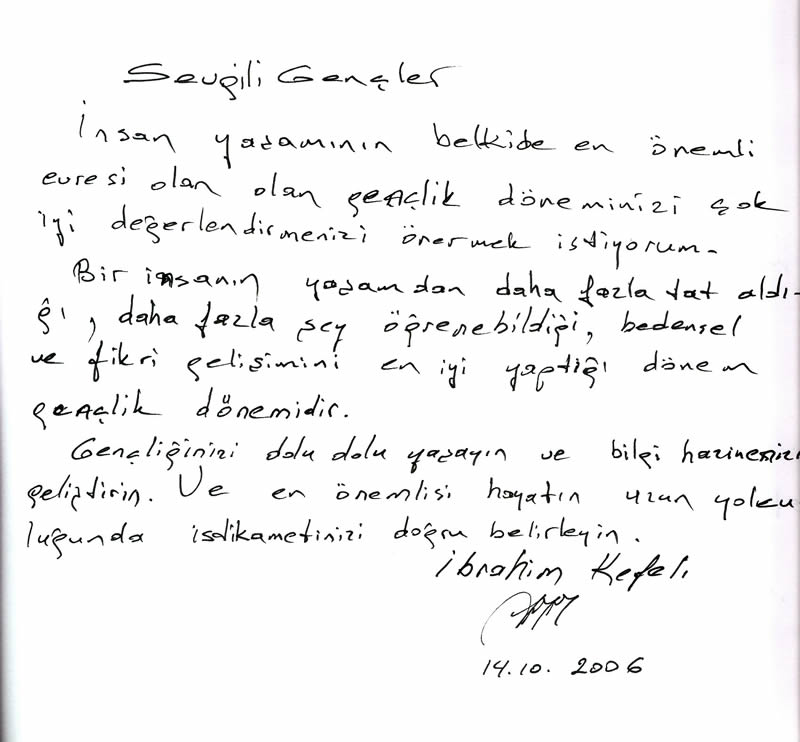 Sevgili Gençler
İnsan yaşamının belkide en önemli
evresi olan olan gençlik döneminizi çok
iyi değerlendirmenizi önermek istiyorum.
Bir insanın yaşamdan daha fazla tat aldı-
ğı, daha fazla şey öğrenebildiği, bedensel
ve fikri gelişimini en iyi yaptığı dönem
gençlik dönemidir.
Gençliğinizi dolu dolu yaşayın ve bilgi hazinenizi
geliştirin. Ve en önemlisi hayatın uzun yolcu
luğunda istikametinizi doğru belirleyin.
İbrahim Kefeli
14.10.2006